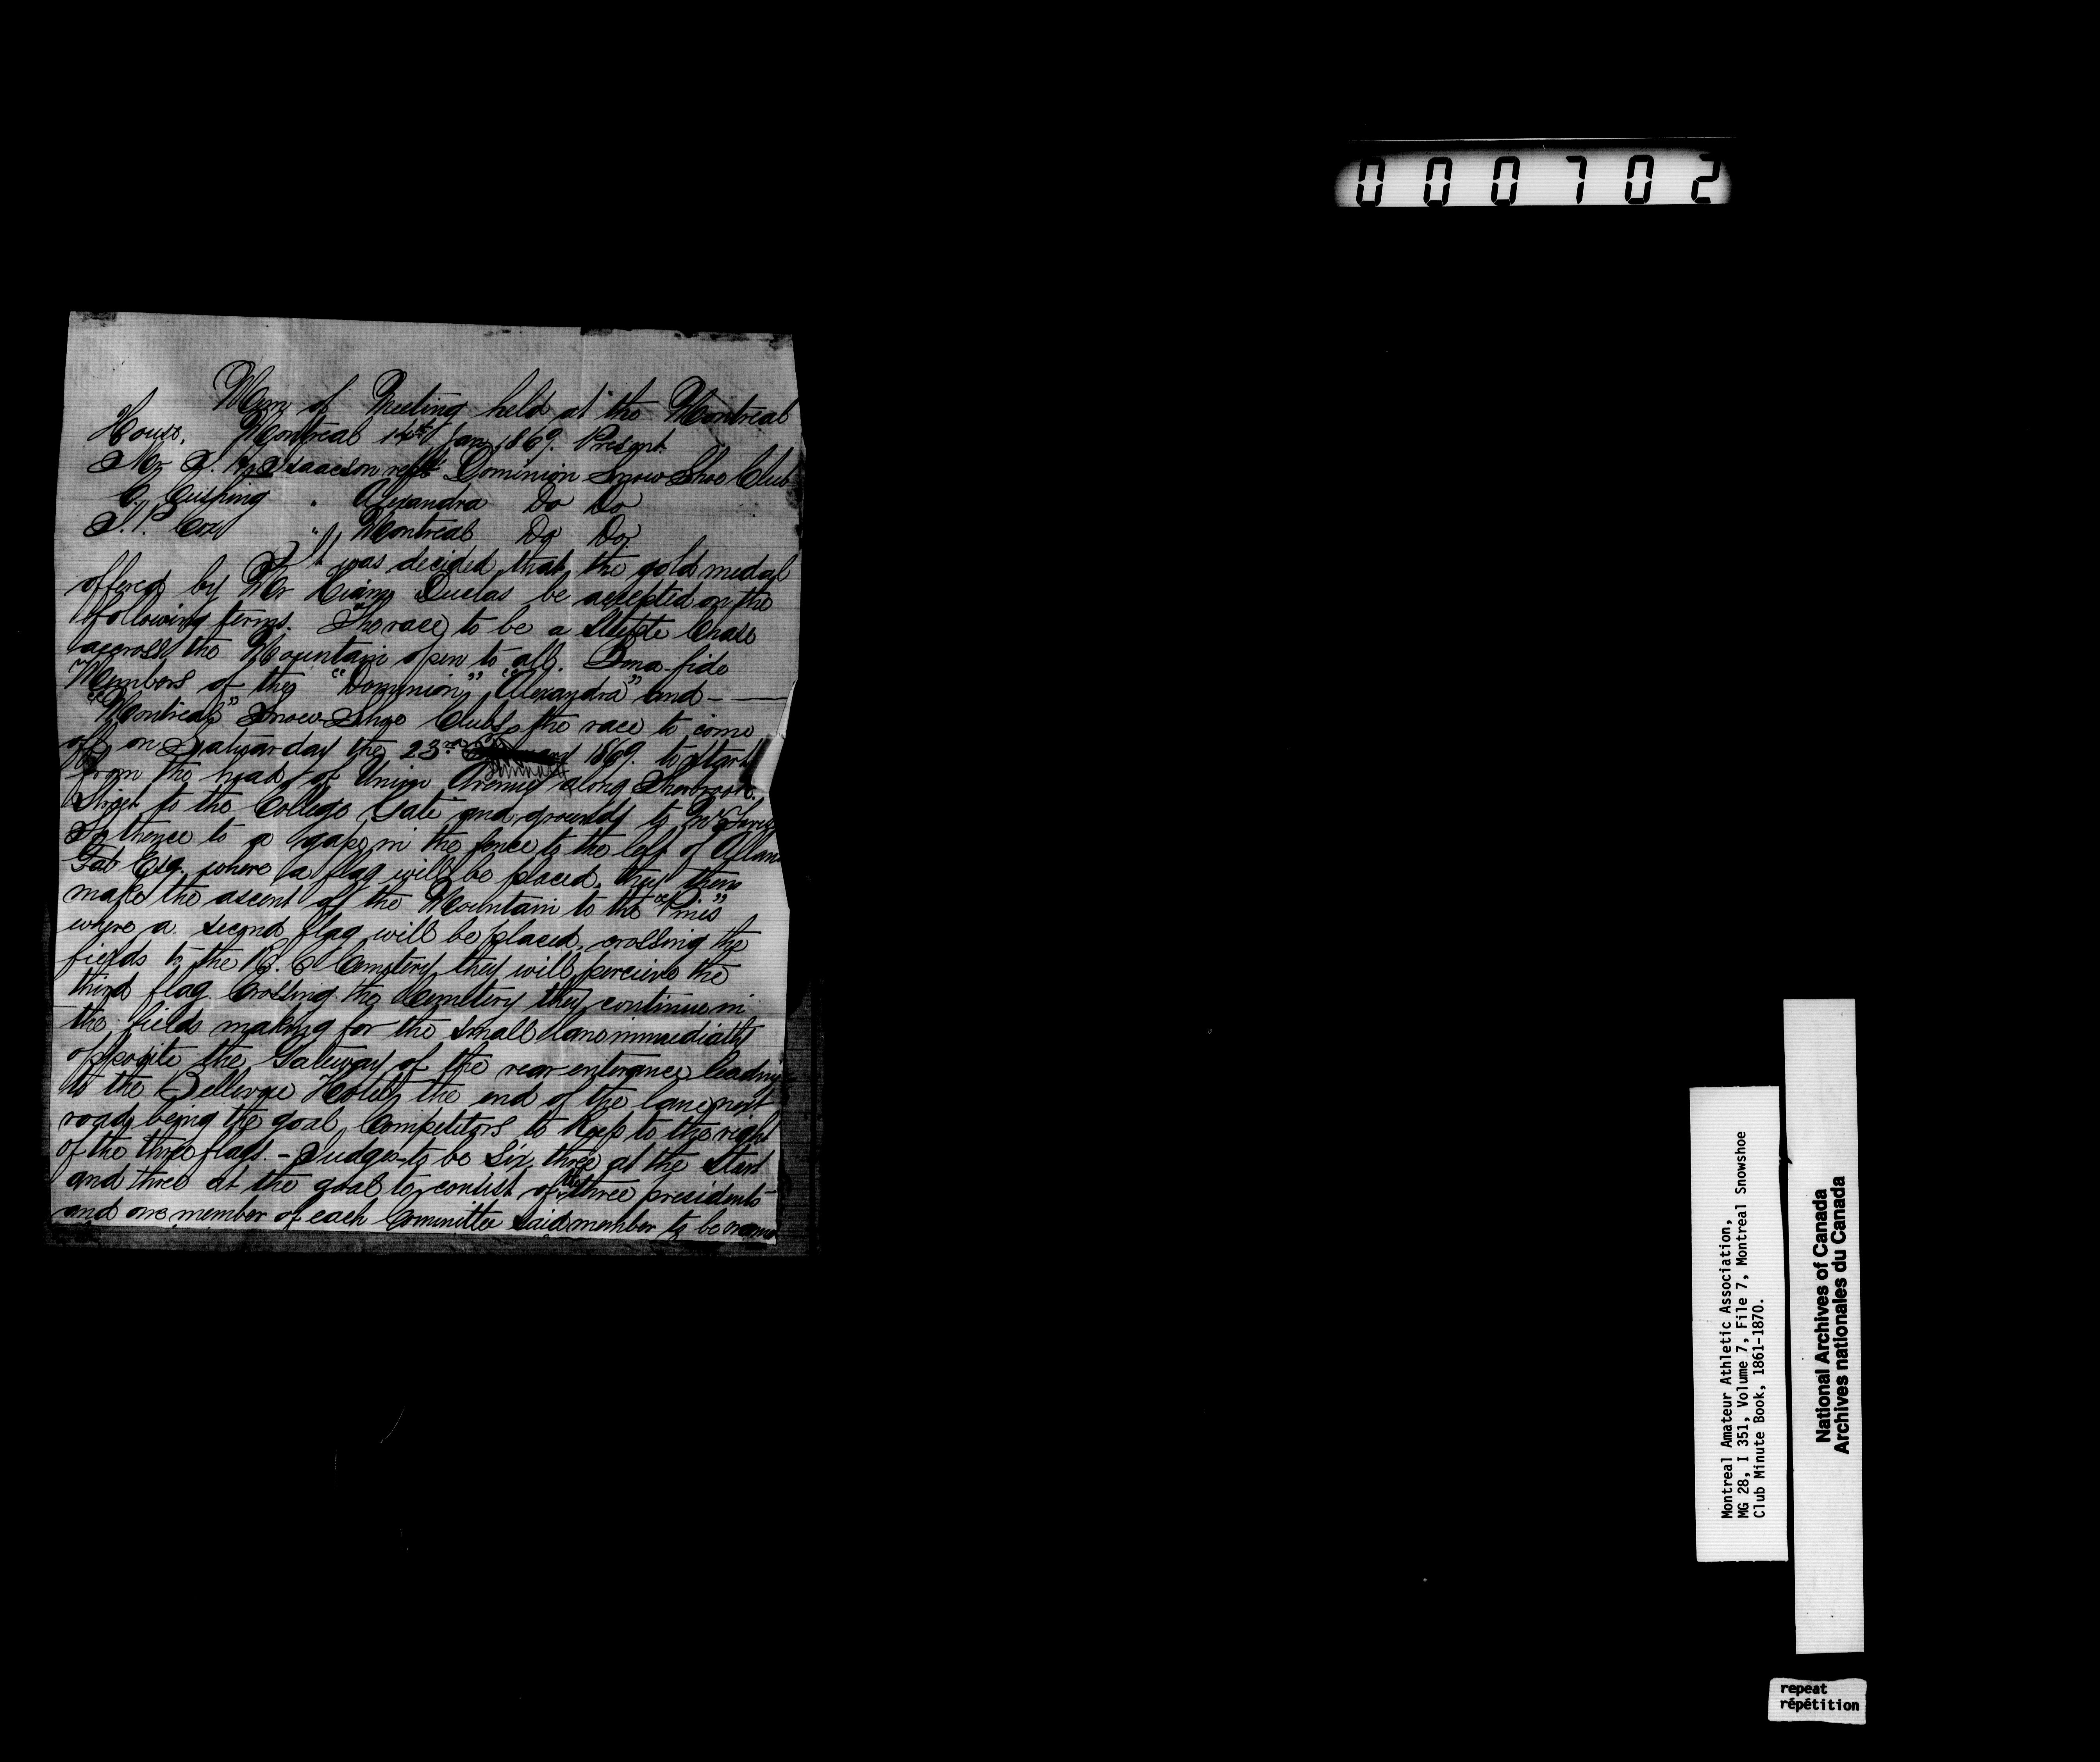 000702
Mem of Meeting held at the Montreal
House, Montreal 14th Jan 1869. Present.
Mr J. Isaacson rept Dominion Snow Shoe Club
C. Cushing " Alexandra Do Do
" Montreal Do Do
It was decided that the gold medal
offered by Mr Duclos be accepted on the
following terms. The race to be a Steeple Chase
accross the Mountain open to all. Bona-fide
Members of the "Dominion," "Alexandra" and -
"Montreal" Snow-Shoe Clubs, the race to come
off on Saturday the 23rd January 1869. to start
from the head of Union Avenue along Sherbrook
Street to the College Gate and grounds to McTavish
St thence to a gap in the fence to the left of Allan
Esq. where a flag will be placed, they then
make the ascent of the Mountain to the "Pines"
where a second flag will be placed, crossing the
fields to the R. C Cemetery they will perceive the
third flag. Crossing the Cemetery they continue in
the fields making for the small lane immediately
opposite the Gateway of the rear enterance leading
to the Bellevue Hotel, the end of the lane next
road being the goal, Competitors to keep to the right
of the three flags. - Judges to be six, three at the Start
and three at the goal to consist of the three presidents
and one member of each Committee said member to be name
Montreal Amateur Athletic Association,
MG 28, I 351, Volume 7, File 7, Montreal Snowshoe
Club Minute Book, 1861-1870.
National Archives of Canada
Archives nationales du Canada
repeat
répétition